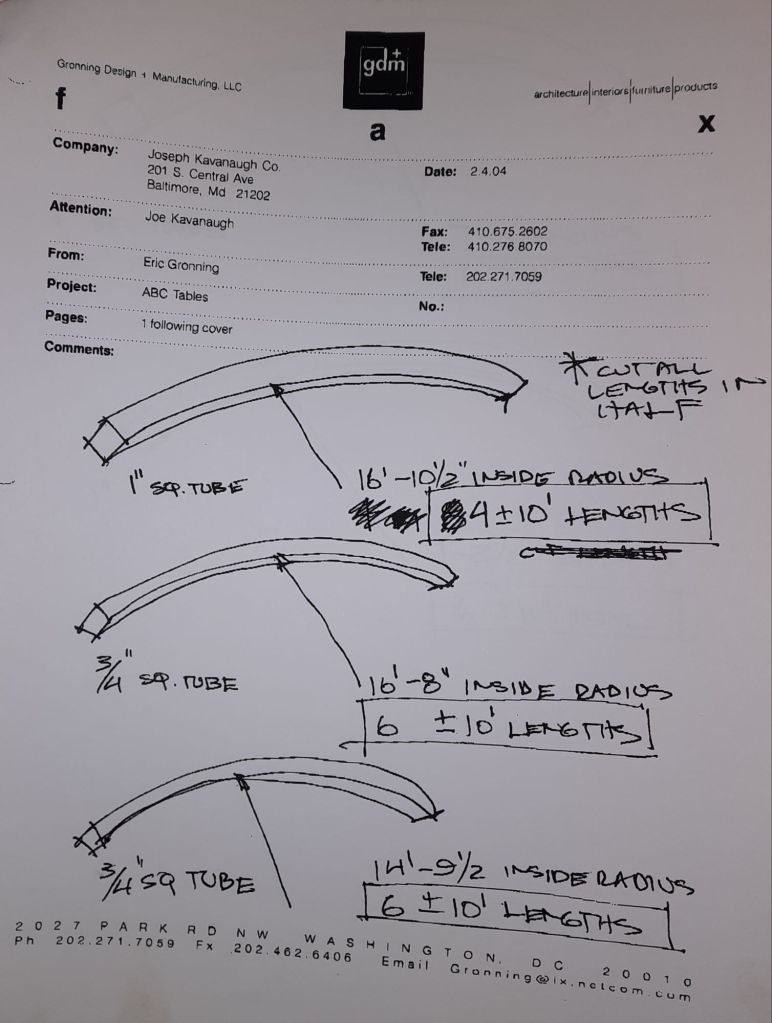 Gronning Design + Manufacturing, LLC
gdm+
architecture|interiors|furniture|products
f a x
Company: Joseph Kavanaugh Co.
201 S. Central Ave
Baltimore, Md 21202
Date: 2.4.04
Attention: Joe Kavanaugh
Fax: 410.675.2602
Tele: 410.276.8070
From: Eric Gronning
Tele: 202.271.7059
Project: ABC Tables
No.:
Pages: 1 following cover
Comments:
* CUT ALL
LENGTHS IN
HALF
1" SQ. TUBE
16'-10 1/2" INSIDE RADIUS
4 ± 10' LENGTHS
3/4" SQ. TUBE
16'-8" INSIDE RADIUS
6 ± 10' LENGTHS
3/4" SQ TUBE
14'-9 1/2 INSIDE RADIUS
6 ± 10' LENGTHS
2027 PARK RD NW WASHINGTON, DC 20010
Ph 202.271.7059 Fx 202.462.6406 Email Gronning@ix.netcom.com